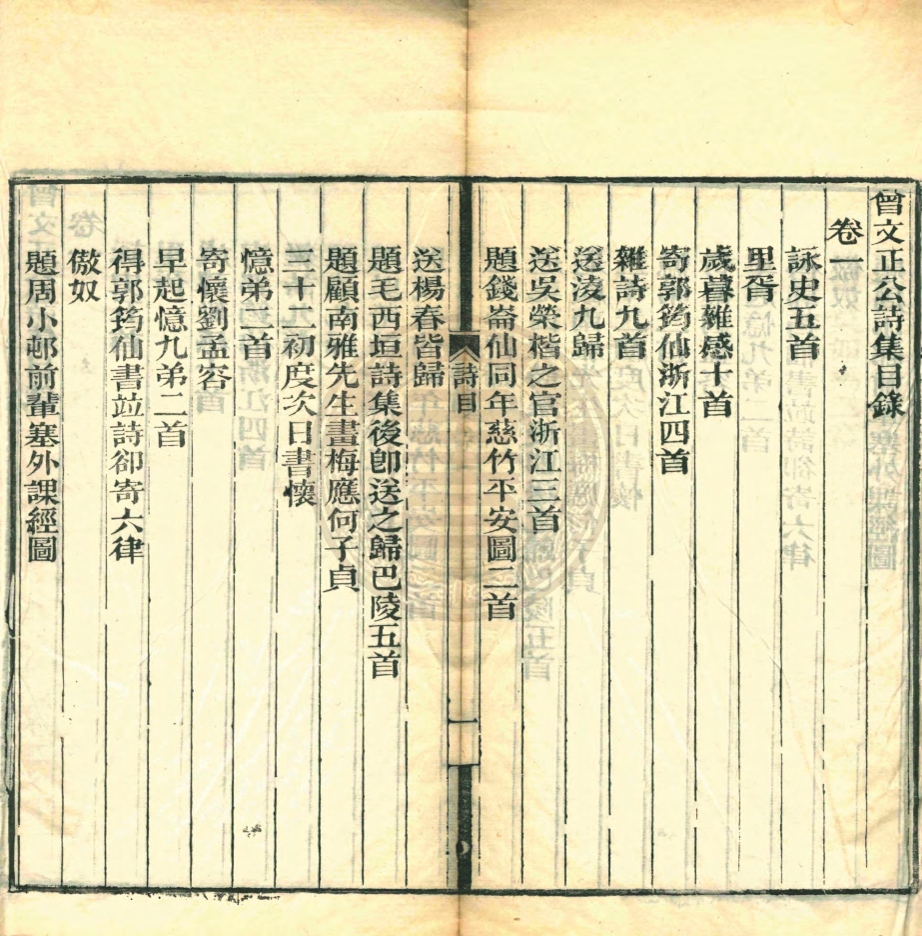 曾文正公詩集目錄
卷一
詠史五首
里胥
歲暮雜感十首
寄郭筠仙浙江四首
雜詩九首
送淩九歸
送吳榮楷之官浙江三首
題錢崙仙同年慈竹平安圖二首
詩目
一
送楊春皆歸
題毛西垣詩集後卽送之歸巴陵五首
題顧南雅先生畫梅應何子貞
三十二初度次日書懷
憶弟二首
寄懷劉孟容
早起憶九弟二首
得郭筠仙書竝詩卻寄六律
傲奴
題周小邨前輩塞外課經圖